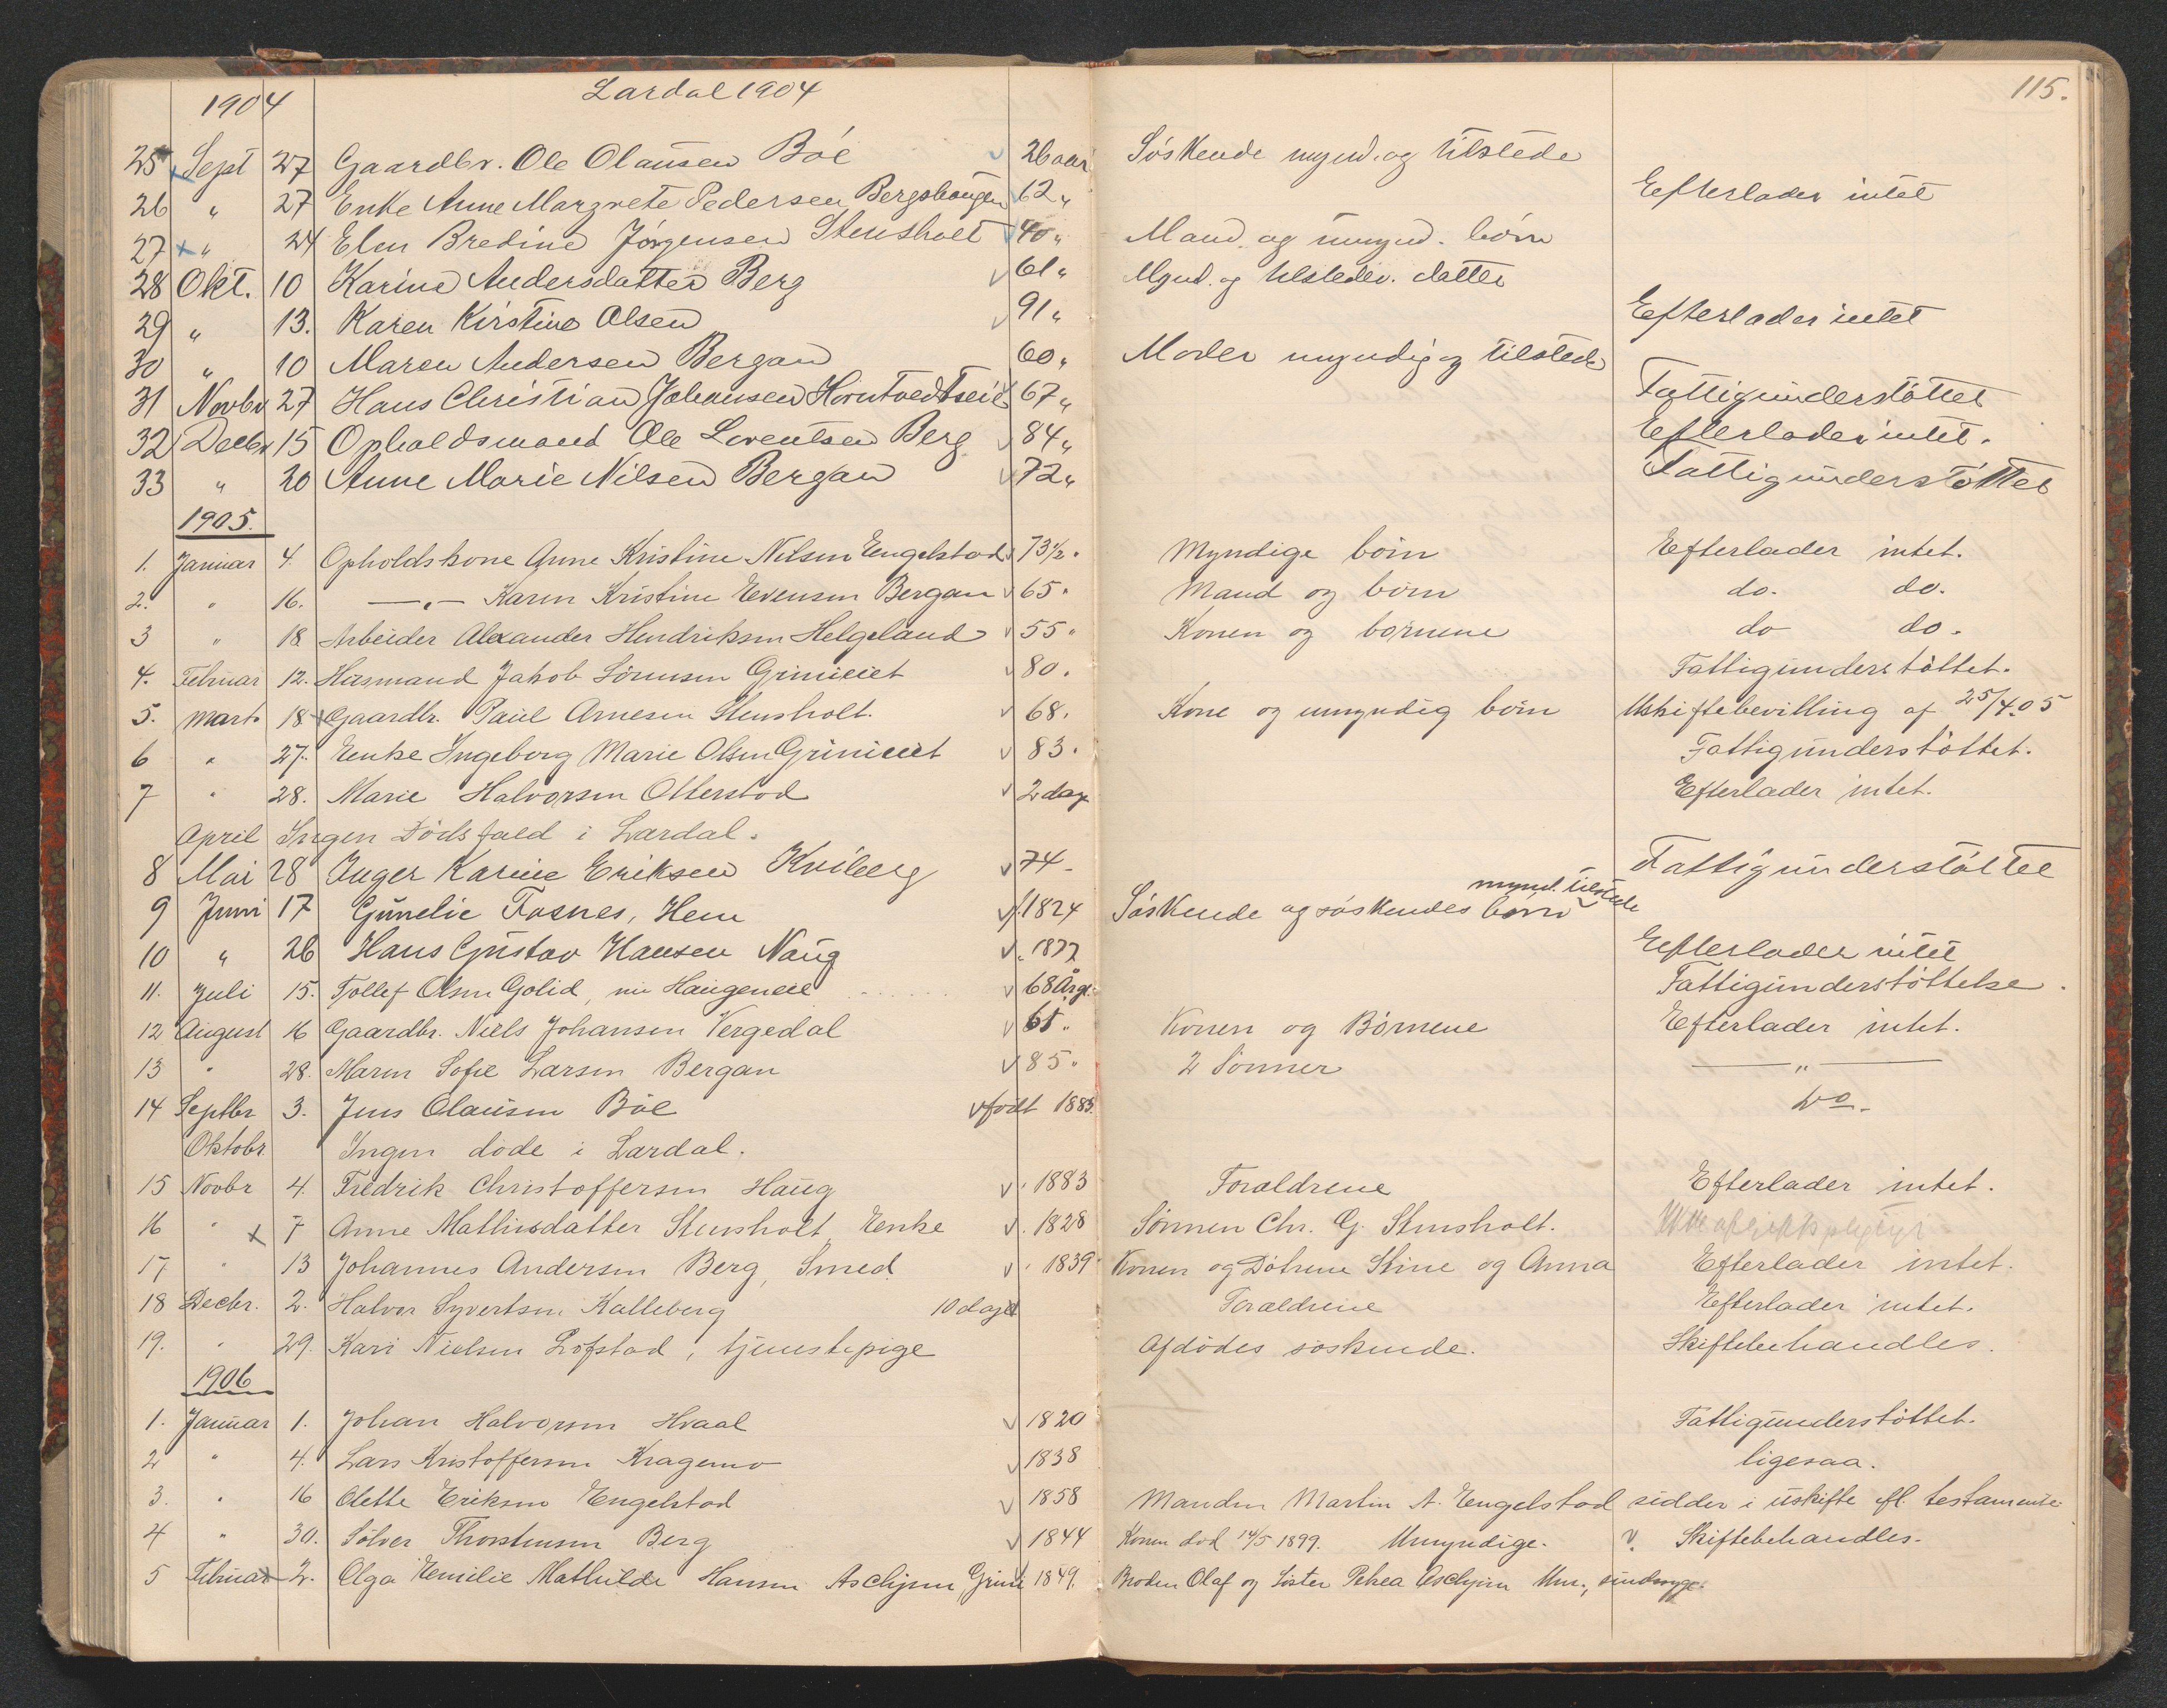 Lardal 1904
115.
1904
25 Sept 27 Gaardbr. Ole Olausen Böe 26 aar Söskende mynd. og tilstede
26 " 27 Enke Anne Margrete Pedersen Bergshaugen 62 " Efterlader intet
27 " 24 Elen Bredine Jörgensen Stensholt 40 " Mand og umynd. börn
28 Okt. 10 Karine Andersdatter Berg 61 " Mynd. og tilstedev. datter
29 " 13. Karen Kirstine Olsen 91 " Efterlader intet
30 " 10 Maren Andersen Bergan 60 " Moder myndig og tilstede
31 Novbr 27 Hans Christian Johansen Horntvedtseie 67 " Fattigunderstöttet
32 Decbr 15 Opholdsmand Ole Lorentsen Berg 84 " Efterlader intet.
33 " 20 Anne Marie Nilsen Bergan 72 " Fattigunderstöttet
1905.
1. Januar 4. Opholdskone Anne Kristine Nilsen Engelstad 73 1/2 " Myndige börn Efterlader intet.
2. " 16. —"— Karen Kristine Evensen Bergan 65 " Mand og börn do. do.
3 " 18 Arbeider Alexander Hendriksen Helgeland 55 " Konen og börnene do do.
4. Februar 12. Husmand Jakob Sörensen Grinieiet 80 " Fattigunderstöttet.
5. Marts 18 Gaardbr. Paul Arnesen Stensholt. 68 " Kone og umyndig börn Uskiftebevilling af 25/4.05
6 " 27. Enke Ingeborg Marie Olsen Grinieiet 83 " Fattigunderstöttet.
7 " 28. Marie Halvorsen Otterstad 2 dage Efterlader intet.
April Ingen Dödsfald i Lardal.
8 Mai 28 Inger Karine Eriksen Kviberg 74 - Fattigunderstöttet
9 Juni 17 Gunelie Fosnes, Hem f. 1824 Söskende og söskendes börn mynd. tilstede
10 " 26 Hans Gustav Hansen Naug " 1877 Efterlader intet
11. Juli 15. Tollef Olsen Golid, nu Haugeneie 68 Årg. Fattigunderstöttelse.
12 August 16 Gaardbr. Niels Johansen Vergedal 61 " Konen og Börnene Efterlader intet.
13 " 28. Maren Sofie Larsen Bergan 85 " 2 Sönner — " —
14 Septbr 3. Jens Olausen Böe födt 1883 Do.
Oktobr Ingen döde i Lardal.
15 Novbr 4. Fredrik Christoffersen Haug " 1883 Foraldrene Efterlader intet.
16 " 7 Anne Mathisdatter Stensholt, Enke " 1828 Sönnen Chr. G. Stensholt.
17 " 13 Johannes Andersen Berg, Smed " 1839 Konen og Dötrene Stine og Anna Efterlader intet.
18 Decbr. 2. Halvor Syvertsen Kalleberg 10 dage Foraldrene Efterlader intet.
19. " 29. Kari Nielsen Löfstad, tjenestepige Afdödes söskende. Skiftebehandles.
1906
1. Januar 1. Johan Halvorsen Hvaal 1820 Fattigunderstöttet.
2 " 4. Lars Kristoffersen Kragemo 1838 ligesaa.
3. " 16 Olette Eriksen Engelstad 1858 Manden Martin A. Engelstad sidder i uskifte efl. testamente.
4 " 30. Sölver Thorstensen Berg 1844 Konen död 14/5 1899. Umyndige. v. Skiftebehandles.
5 Februar 2. Olga Emilie Mathilde Hansen Aschjem, Grini 1849. Broden Olaf og Söster Petrea Aschjem Um., sindssyge.